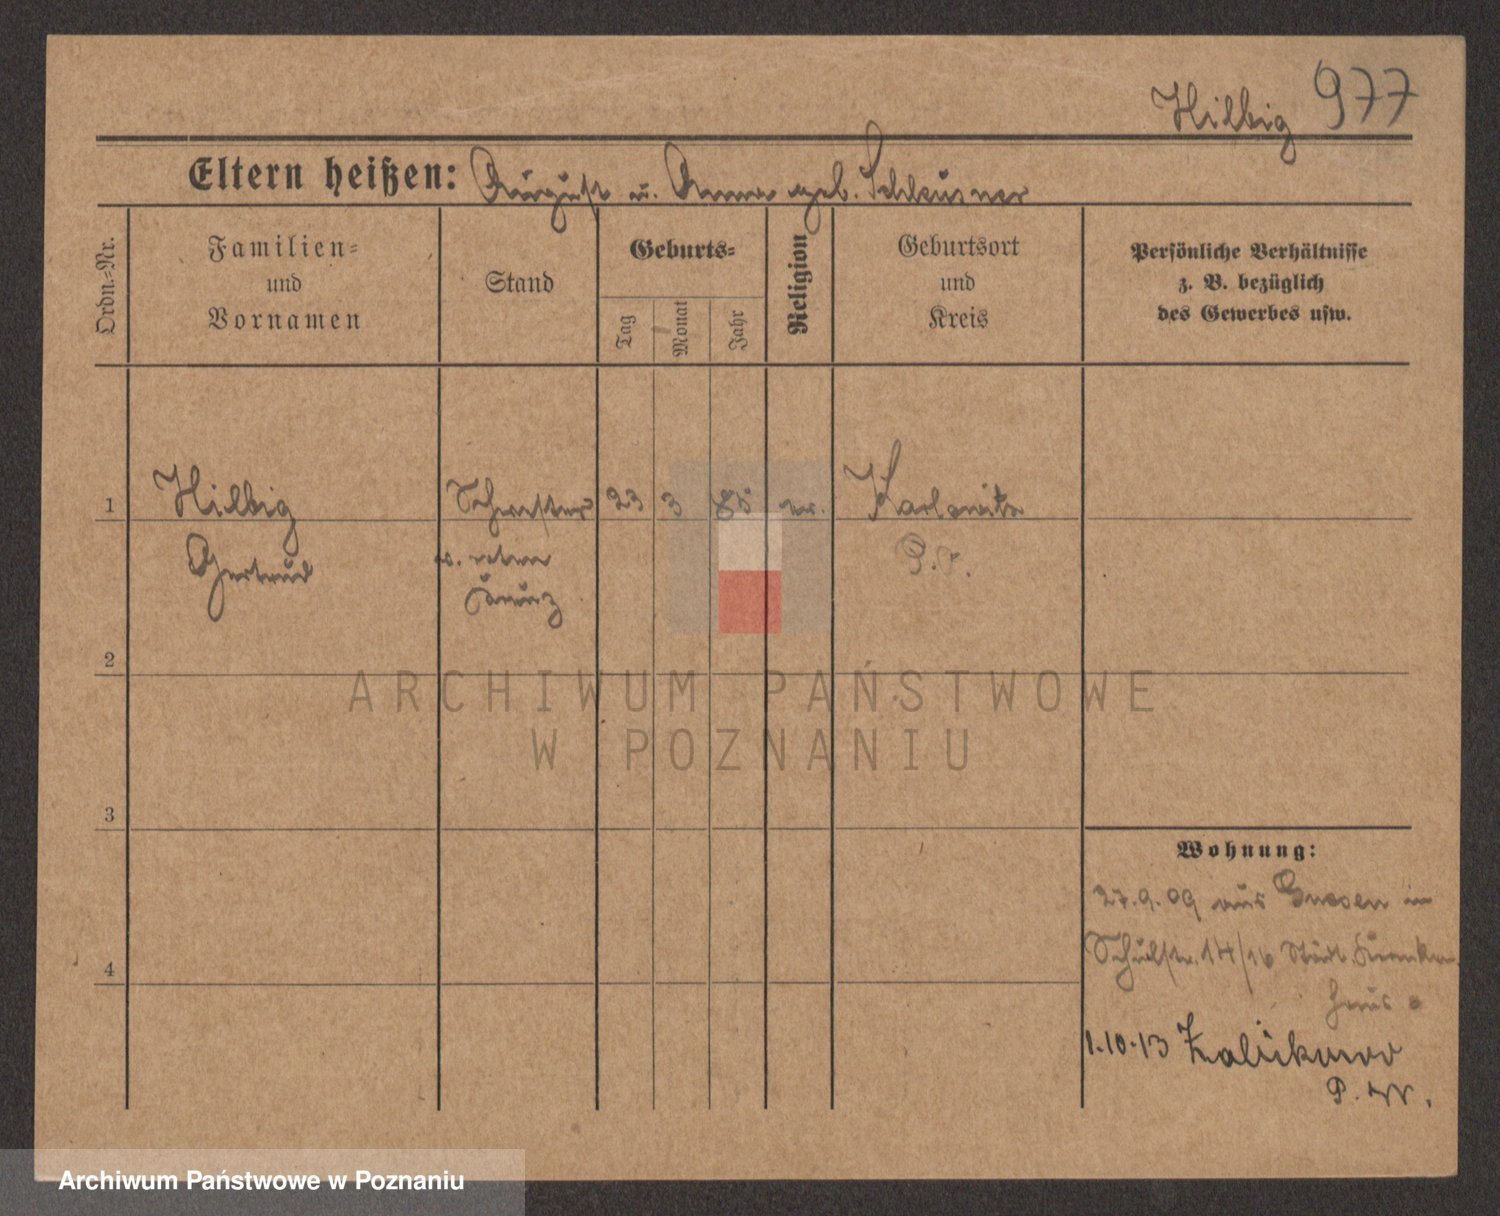 Hilbig 977
Eltern heißen: August u. Anna geb. Schleusner
Ordn.=Nr.
Familien=
und
Vornamen
Stand
Geburts=
Tag
Monat
Jahr
Religion
Geburtsort
und
Kreis
Persönliche Verhältnisse
z. B. bezüglich
des Gewerbes usw.
1 Hilbig Schwester 23 3 85 ev. Karlowitz
Gertrud v. roten P.
Kreuz
2
3
4
Wohnung:
27.9.09 aus Gnesen in
Schulstr. 14/16 Städt. Kranken
haus
1.10.13
P. W.
ARCHIWUM PAŃSTWOWE
W POZNANIU
Archiwum Państwowe w Poznaniu